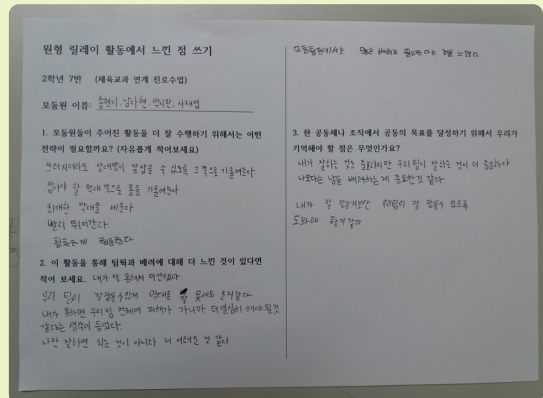 원형 릴레이 활동에서 느낀 점 쓰기
2학년 7반 (체육교과 연계 진로수업)
모둠원 이름: 송현지, 남다현,
1. 모둠원들이 주어진 활동을 더 잘 수행하기 위해서는 어떤
전략이 필요할까요? (자유롭게 적어보세요)
쓰러지더라도 상대방이 잡을 수 있도록 그 쪽으로 기울여준다.
잡아야 할 막대 쪽으로 몸을 기울여준다
최대한 막대를 세운다
빨리 뛰어간다.
2. 이 활동을 통해 팀웍과 배려에 대해 더 느낀 것이 있다면
적어 보세요. 내가 잘 못해서 미안했다
우리 팀이 잘 막대를 못세운 것같다
내가 못하면 우리팀 전체에 피해가 가니까 더 열심히 해야 될것
같다는 생각이 들었다.
나만 잘하면 되는 것이 아니라 더 어려운 것 같다
모둠활동에서는 많은 배려가 필요하다는 것을 느꼈다.
3. 한 공동체나 조직에서 공동의 목표를 달성하기 위해서 우리가
기억해야 할 점은 무엇인가요?
내가 잘하는 것도 중요하지만 우리팀이 잘 하는 것이 더 중요하다
나보다는 남을 배려하는게 중요한것 같다.
내가 잘 잡는것보단 팀원이 잘 잡을수 있도록
도와야 할거같다